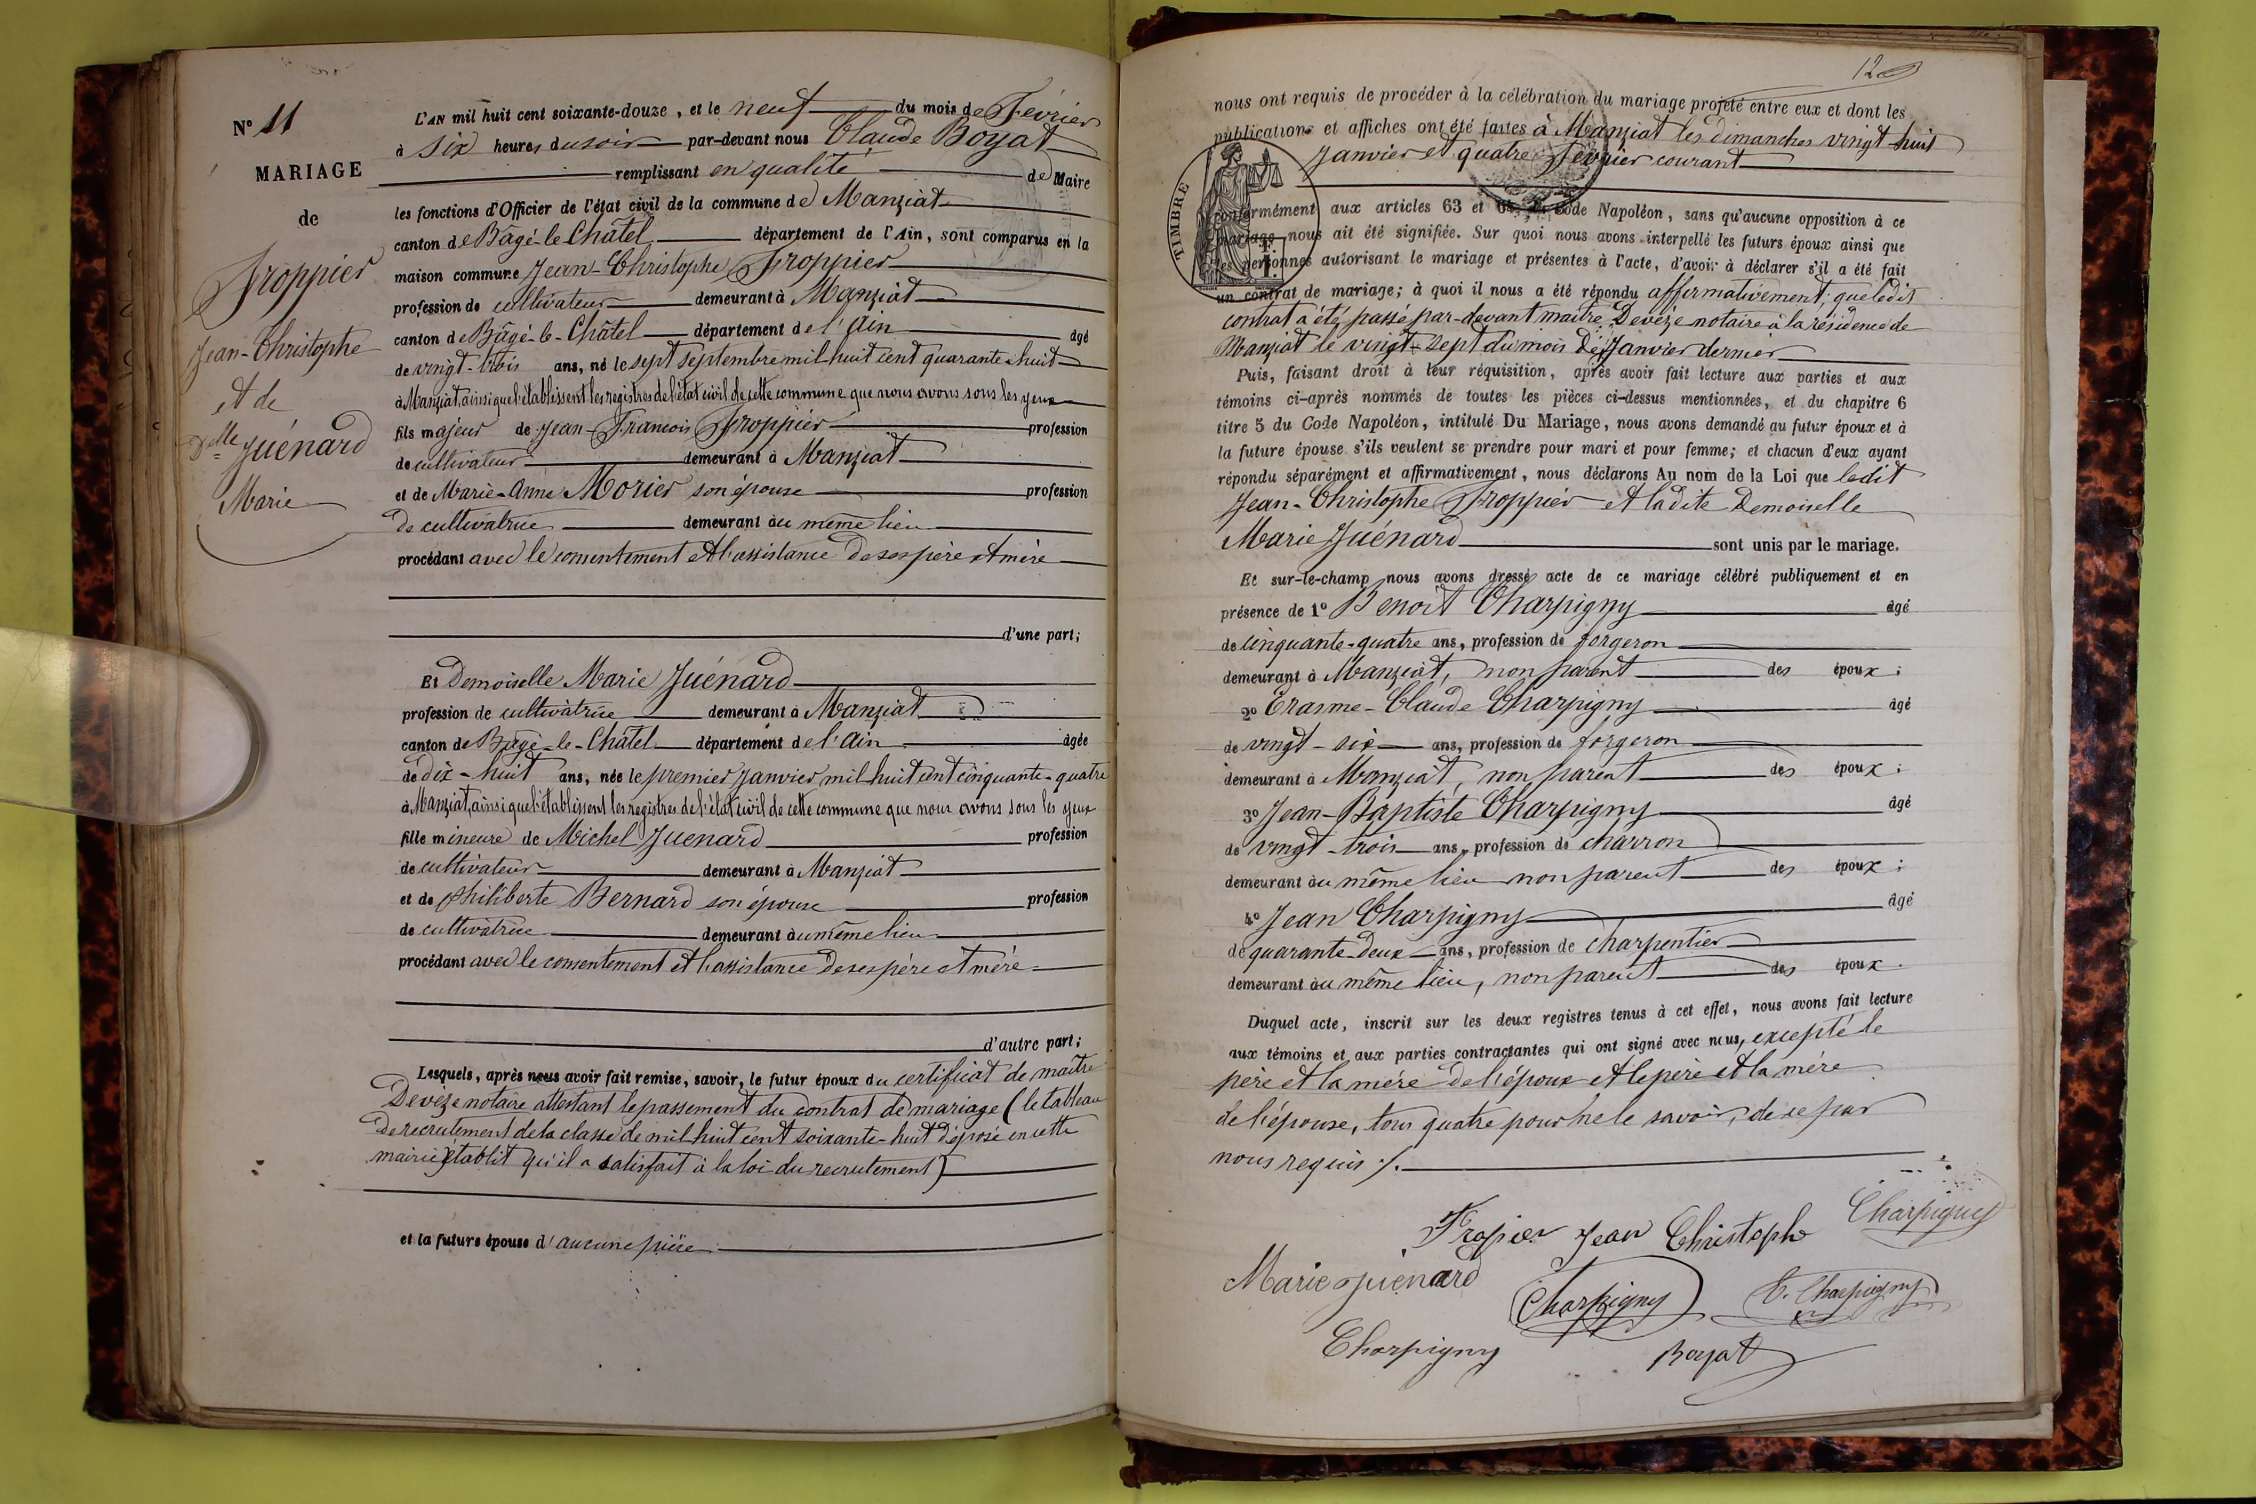 N° 11
MARIAGE
de
Froppier
Jean-Christophe
et de
Dlle Juénard
Marie
L'AN mil huit cent soixante-douze, et le neuf du mois de Février
à six heures du soir par-devant nous Claude Boyat
remplissant en qualité de Maire
les fonctions d'Officier de l'état civil de la commune de Manziat
canton de Bâgé-le-Châtel département de l'Ain, sont comparus en la
maison commune Jean-Christophe Froppier
profession de cultivateur demeurant à Manziat
canton de Bâgé-le-Châtel département de l'Ain âgé
de vingt-trois ans, né le sept septembre mil huit cent quarante-huit
à Manziat, ainsi que l'établissent les registres de l'état civil de cette commune que nous avons sous les yeux
fils majeur de Jean-François Froppier profession
de cultivateur demeurant à Manziat
et de Marie-Anne Morier son épouse profession
de cultivatrice demeurant au même lieu
procédant avec le consentement et l'assistance de ses père et mère
d'une part;
Et Demoiselle Marie Juénard
profession de cultivatrice demeurant à Manziat
canton de Bâgé-le-Châtel département de l'Ain âgée
de dix-huit ans, née le premier Janvier mil huit cent cinquante-quatre
à Manziat, ainsi que l'établissent les registres de l'état civil de cette commune que nous avons sous les yeux
fille mineure de Michel Juenard profession
de cultivateur demeurant à Manziat
et de Philiberte Bernard son épouse profession
de cultivatrice demeurant au même lieu
procédant avec le consentement et l'assistance de ses père et mère
d'autre part;
Lesquels, après nous avoir fait remise, savoir, le futur époux du certificat de maître
Devèze notaire attestant le passement du contrat de mariage (le tableau
de recrutement de la classe de mil huit cent soixante-huit déposé en cette
mairie établit qu'il a satisfait à la loi du recrutement)
et la future épouse d'aucune pièce
12
nous ont requis de procéder à la célébration du mariage projeté entre eux et dont les
publications et affiches ont été faites à Manziat les dimanches vingt huit
Janvier et quatre Février courant
TIMBRE
conformément aux articles 63 et 64 du Code Napoléon, sans qu'aucune opposition à ce
mariage nous ait été signifiée. Sur quoi nous avons interpellé les futurs époux ainsi que
les personnes autorisant le mariage et présentes à l'acte, d'avoir à déclarer s'il a été fait
un contrat de mariage; à quoi il nous a été répondu affirmativement; que ledit
contrat a été passé par-devant maître Devèze notaire à la résidence de
Manziat le vingt-sept du mois de Janvier dernier
Puis, faisant droit à leur réquisition, après avoir fait lecture aux parties et aux
témoins ci-après nommés de toutes les pièces ci-dessus mentionnées, et du chapitre 6
titre 5 du Code Napoléon, intitulé Du Mariage, nous avons demandé au futur époux et à
la future épouse s'ils veulent se prendre pour mari et pour femme; et chacun d'eux ayant
répondu séparément et affirmativement, nous déclarons Au nom de la Loi que ledit
Jean-Christophe Froppier et ladite Demoiselle
Marie Juénard sont unis par le mariage.
Et sur-le-champ nous avons dressé acte de ce mariage célébré publiquement et en
présence de 1° Benoit Charpigny âgé
de cinquante-quatre ans, profession de forgeron
demeurant à Manziat, non parent des époux;
2° Erasme-Claude Charpigny âgé
de vingt-six ans, profession de forgeron
demeurant à Manziat, non parent des époux;
3° Jean-Baptiste Charpigny âgé
de vingt-trois ans, profession de charron
demeurant au même lieu non parent des époux;
4° Jean Charpigny âgé
de quarante-deux ans, profession de charpentier
demeurant au même lieu, non parent des époux.
Duquel acte, inscrit sur les deux registres tenus à cet effet, nous avons fait lecture
aux témoins et aux parties contractantes qui ont signé avec nous, excepté le
père et la mère de l'époux et le père et la mère
de l'épouse, tous quatre pour ne le savoir, de ce par
nous requis ./.
Fropier Jean Christophe Charpigny
Marie juénard Charpigny E. Charpigny
Charpigny Boyat